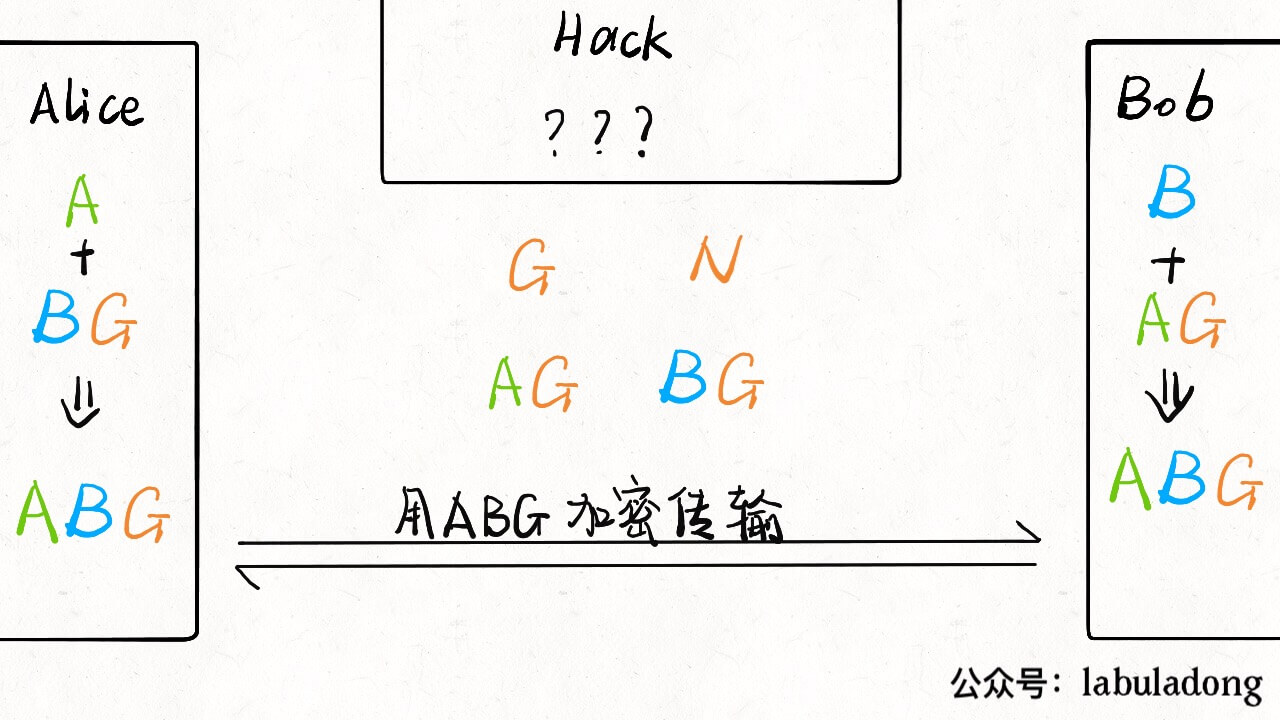 Alice
A
+
BG
⇓
ABG
Hack
? ? ?
G N
AG BG
用ABG加密传输
Bob
B
+
AG
⇓
ABG
公众号：labuladong